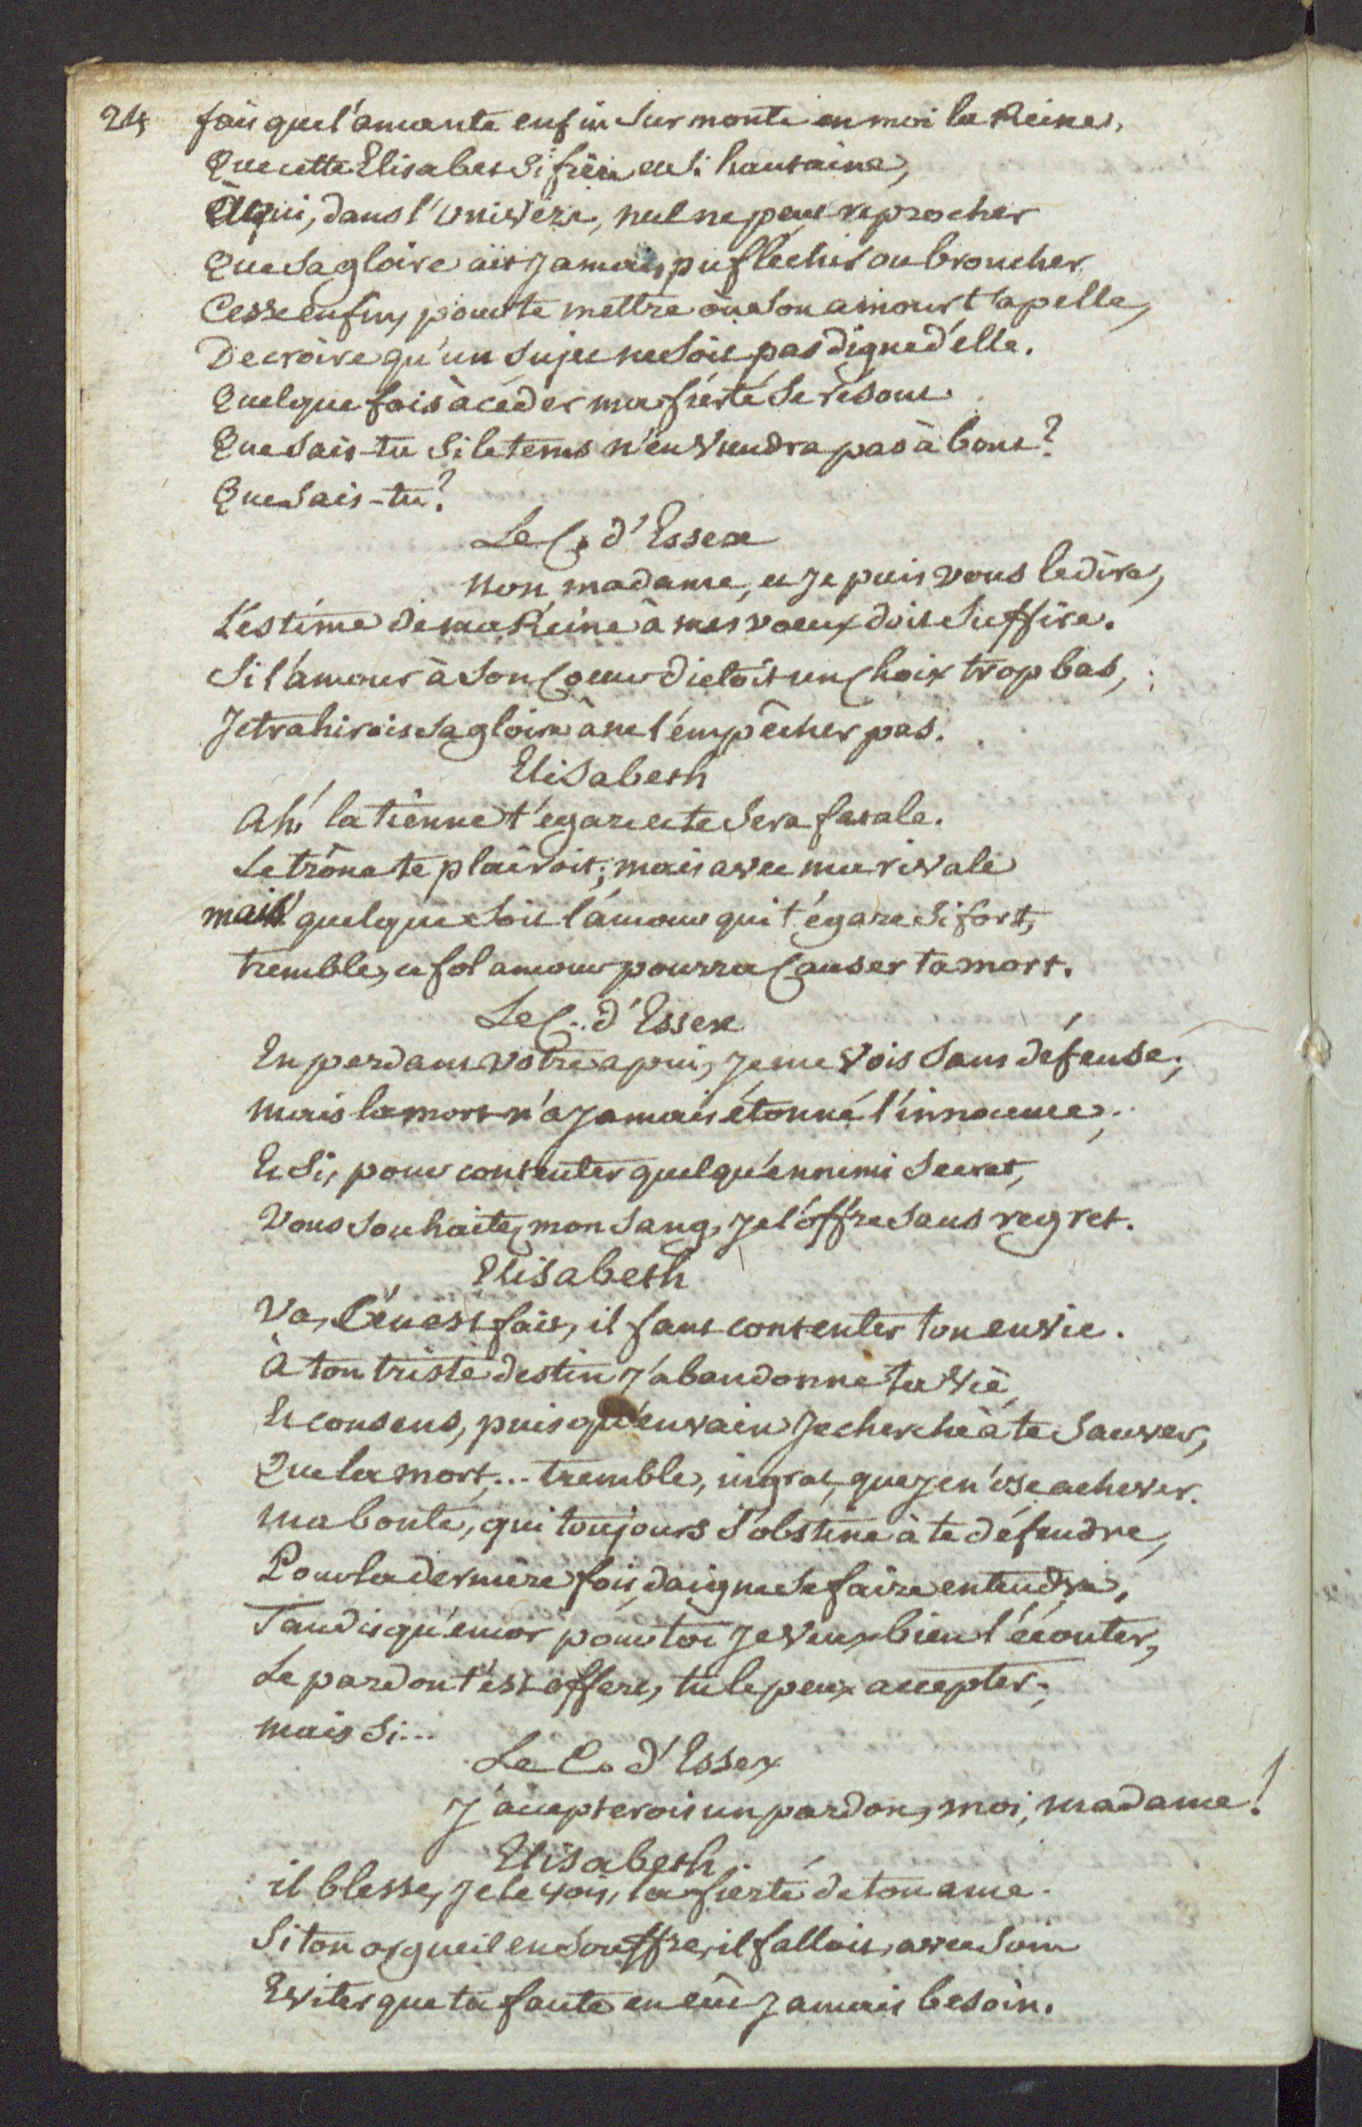 24 fais que l'amante enfin surmonte en moi la Reine,
Que cette Elisabet si fiére et si hautaine,
À qui, dans l'univèrs, nul ne peut reprocher
Que sa gloire ait jamais pu fléchir ou broncher
Cesse enfin, pour te mettre où son amour t'apelle,
De croire qu'un sujet ne soit pas digne d'elle.
Quelque fois à céder ma fiérté se résout
Que sais-tu si le tems n'en viendra pas à bout?
Que sais-tu?
Le C. d'Essex
Non, madame, et je puis vous le dire,
L'estime de ma Reine à mes voeux doit suffire.
Si l'amour à son coeur dictoit un choix trop bas,
Je trahirois sa gloire à ne l'empêcher pas.
Elisabeth
Ah! la tienne t'égare et te sera fatale.
Le trône te plairoit; mais avec ma rivale
mais quelque soit l'amour qui t'égare si fort,
tremble, ce fol amour pourra causer ta mort.
Le C. d'Essex
En perdant votre apui, je me vois sans défense;
mais la mort n'a jamais étonné l'innocence;
Et si, pour contenter quelqu'ennemi secret,
Vous souhaitez mon sang, je l'offre sans regret.
Elisabeth
Va, c'en est fait, il faut contenter ton envie.
À ton triste destin j'abandonne ta vie
Et consens, puisqu'en vain je cherche à te sauver,
Que la mort,... tremble, ingrat, que je n'ose achever.
Ma bonté, qui toujours s'obstine à te défendre,
Pour la dernière fois daigne se faire entendre,
Tandis qu'encor pour toi je veux bien l'écouter,
Le pardon t'est offert, tu le peux accepter;
mais si...
Le C. d'Essex
J'accepterois un pardon, moi, madame!
Elisabeth
il blesse, je le vois, la fierté de ton ame.
Si ton orgueil en souffre, il falloit, avec soin
Eviter que ta faute en eût jamais besoin.